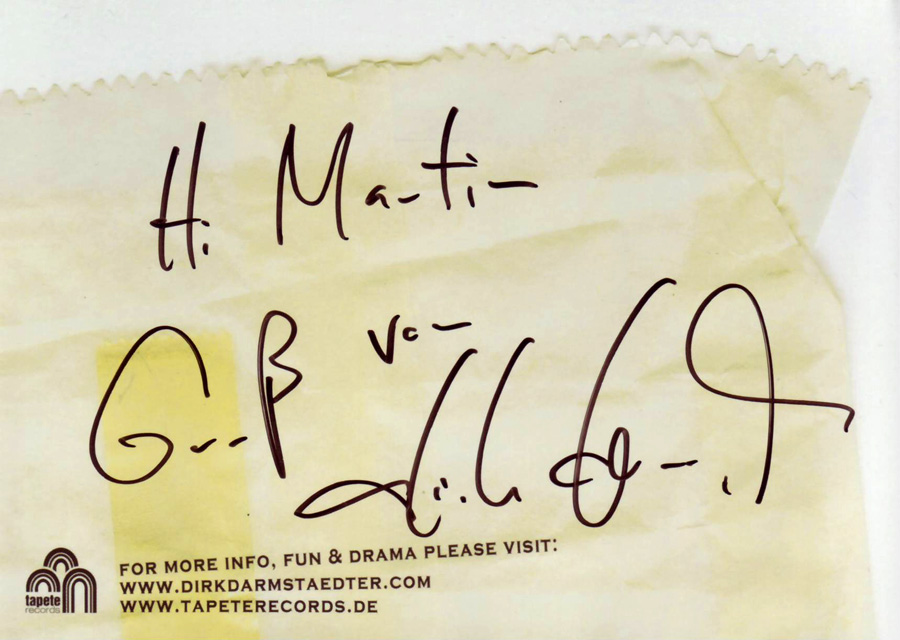 Hi Martin
Gruß von
Dirk Darmstaedter
FOR MORE INFO, FUN & DRAMA PLEASE VISIT:
WWW.DIRKDARMSTAEDTER.COM
WWW.TAPETERECORDS.DE
tapete
records